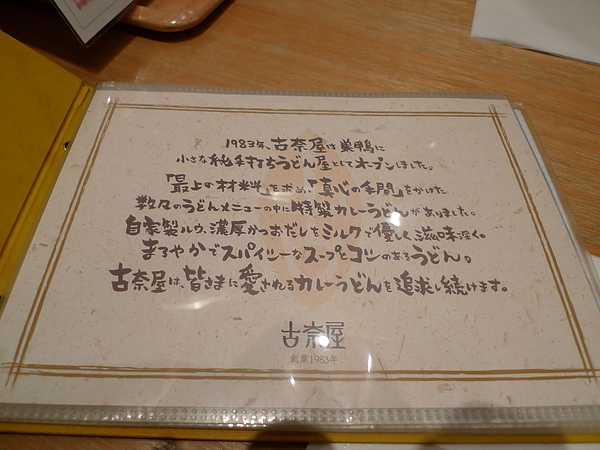 1983年、古奈屋は巣鴨に
小さな純手打ちうどん屋としてオープンしました。
「最上の材料」を求め、「真心の手間」をかけた
数々のうどんメニューの中に特製カレーうどんがありました。
自家製ルウ、濃厚かつおだしをミルクで優しく滋味深く。
まろやかでスパイシーなスープとコシのあるうどん。
古奈屋は、皆さまに愛されるカレーうどんを追求し続けます。
古奈屋
創業1983年